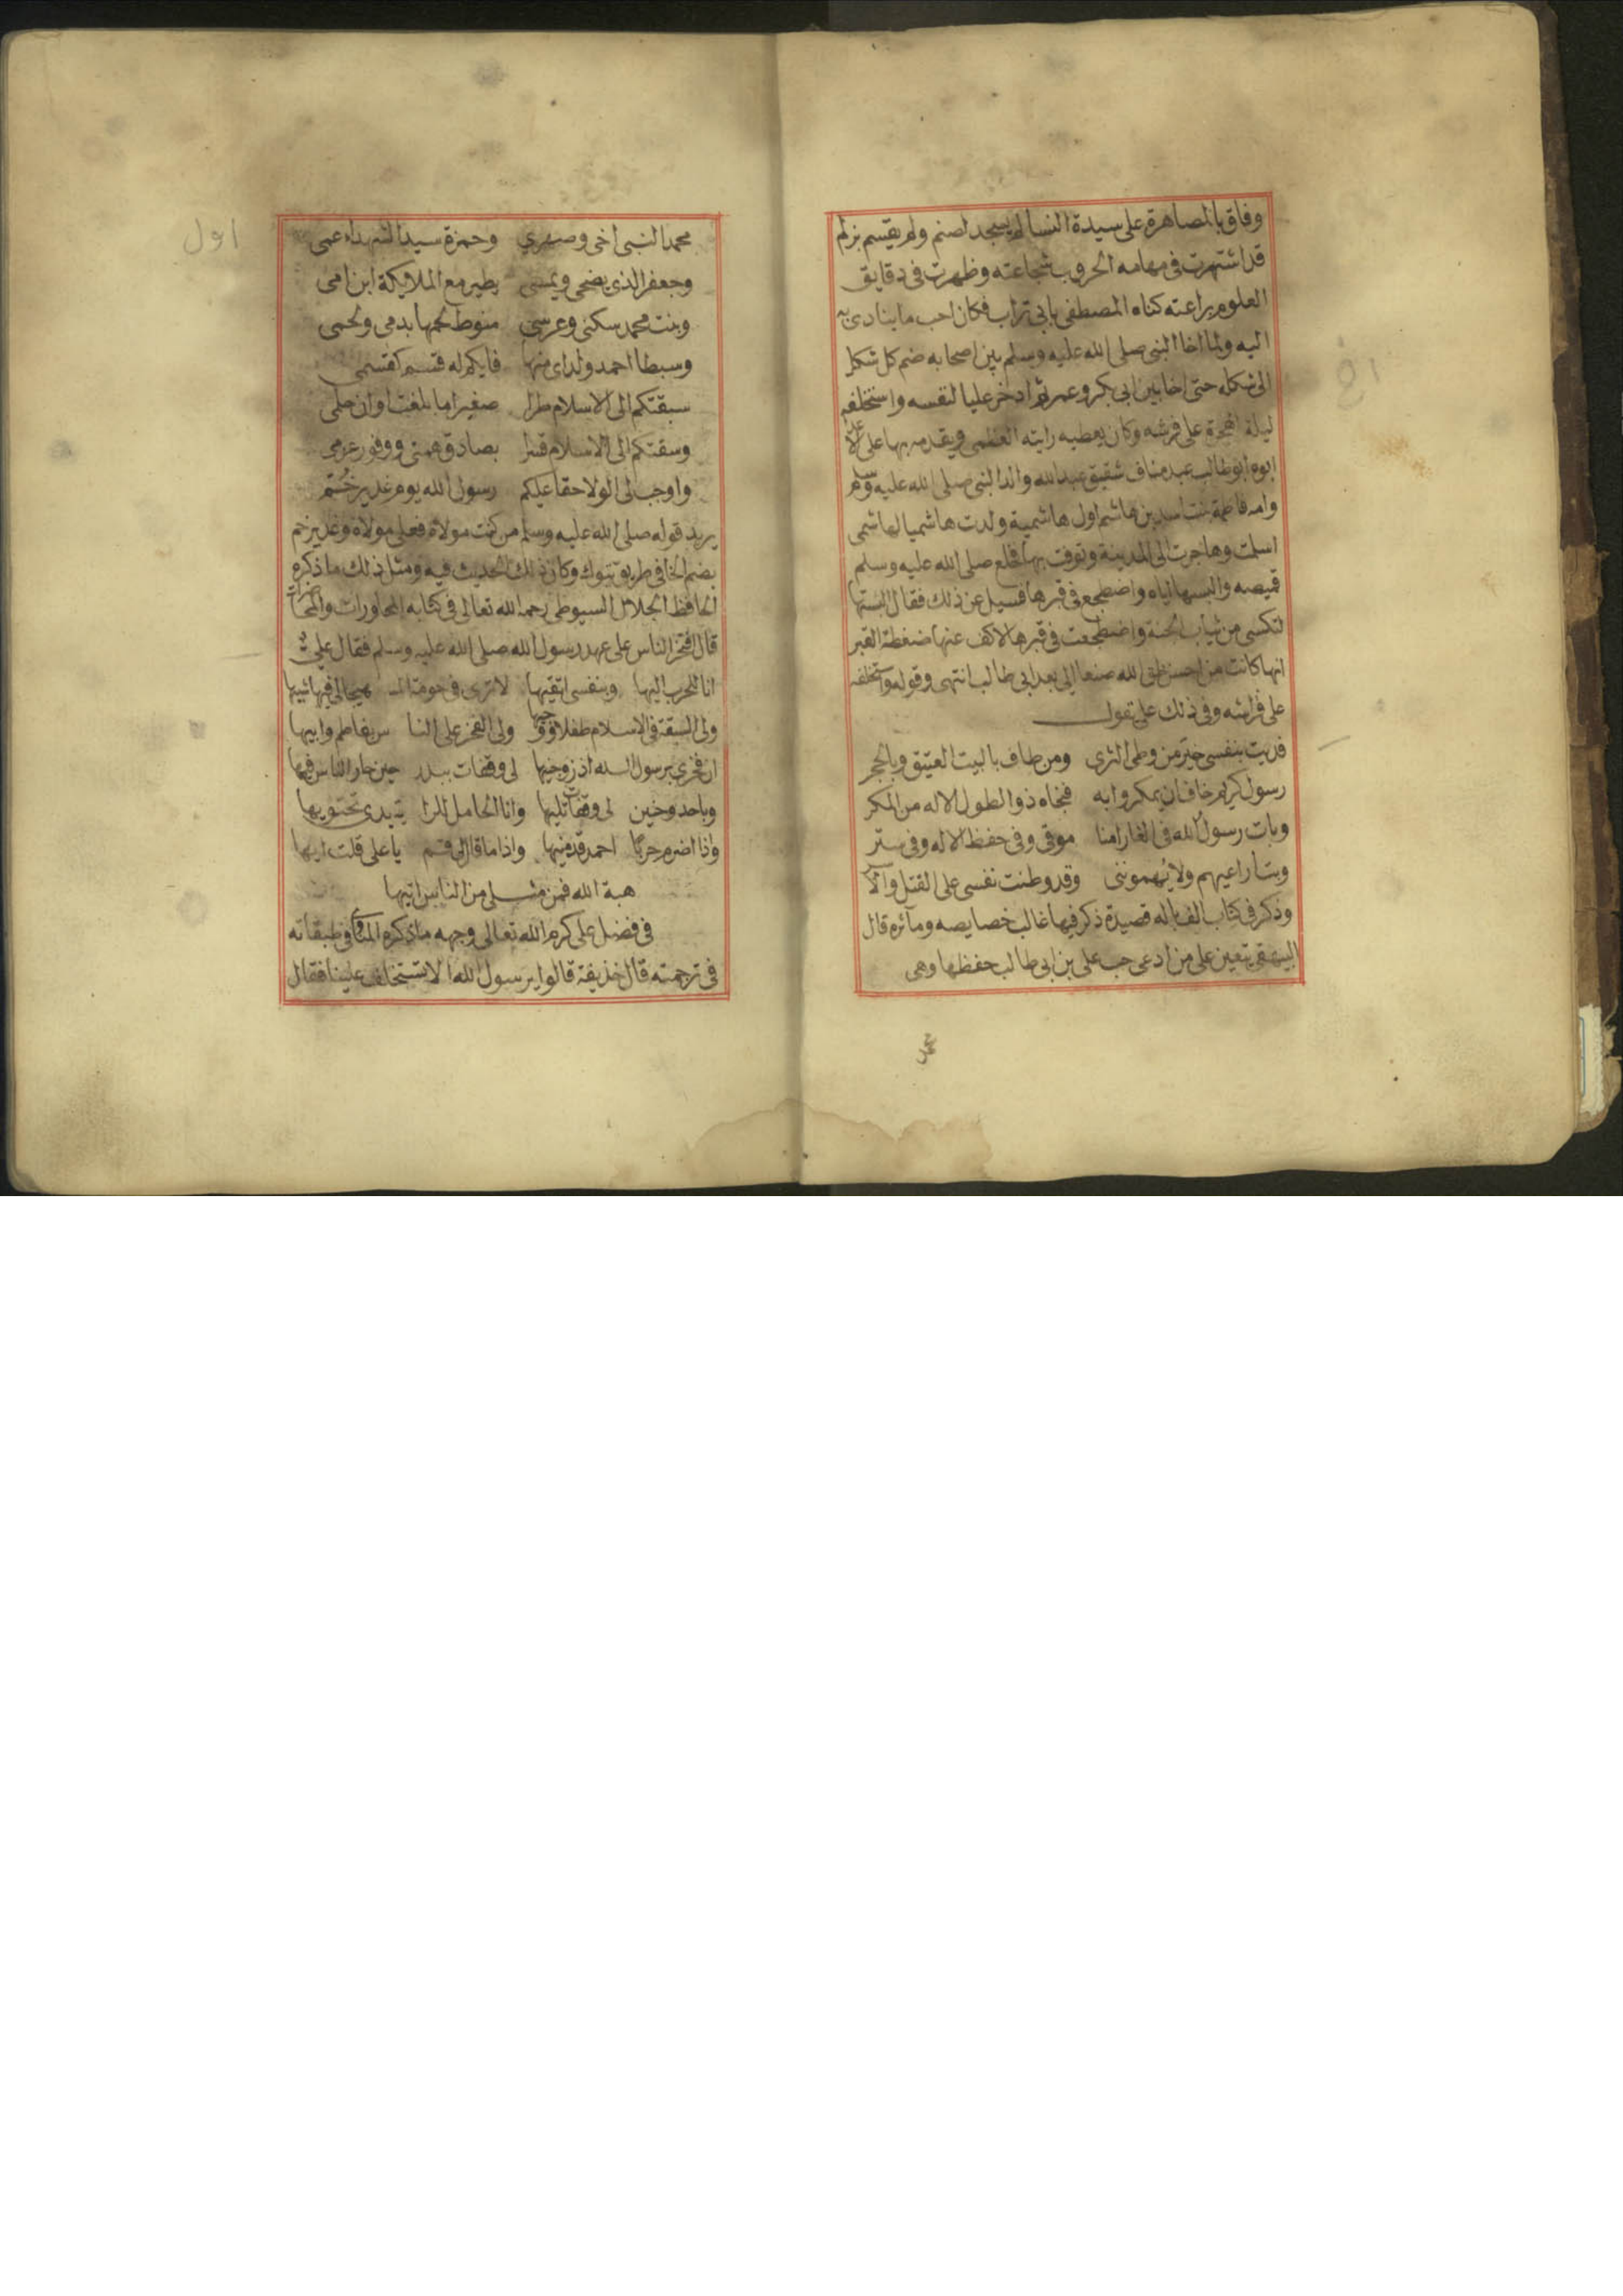 وفاق بالمصاهرة على سيدة النسا لم يسجد لصنم ولم يقسم بزلم
قد اشتهرت فى مهامه الحروب شجاعته وظهرت فى دقايق
العلوم براعته كناه المصطفى بابى تراب فكان احب ما ينادى به
اليه ولما اخا النبى صلى الله عليه وسلم بين اصحابه ضم كل شكل
الى شكله حتى اخا بين ابى بكر وعمر ثم ادخر عليا لنفسه واستخلفه
ليلة الهجرة على فرشه وكان يعطيه رايته العظمى ويقدمه بها على
ابوه ابو طالب عبد مناف شقيق عبد الله والد النبى صلى الله عليه وسلم
وامه فاطمة بنت اسد بن هاشم اول هاشمية ولدت هاشميا لهاشمى
اسلمت وهاجرت الى المدينة وتوفت بها فخلع صلى الله عليه وسلم
قميصه والبسها اياه واضطجع فى قبرها فسيل عن ذلك فقال البستها
لتكسى من ثياب الجنة واضطجعت فى قبرها لاكف عنها ضغطة القبر
انها كانت من احسن خلق الله صنعا الى بعد ابى طالب انتهى وقوله واستخلفه
على فراشه وفى ذلك على يقول
فديت بنفسى خير من وطى الثرى ومن طاف بالبيت العتيق وبالحجر
رسول كريم خاف ان يمكروا به فنجاه ذو الطول الاله من المكر
وبات رسول الله فى الغار امنا موقى وفى حفظ الاله وفى ستر
وبت اراعيهم ولا يتهموننى وقد وطنت نفسى على القتل والاسر
وذكر فى كتاب الف با له قصيدة ذكر فيها غالب خصايصه ومآثره قال
البيهقى يتعين على من ادعى حب على بن ابى طالب حفظها وهى
محمد
محمد النبى اخى وصهري وحمزة سيد الشهداء عمى
وجعفر الذى يضحى ويمسى يطير مع الملايكة ابن امى
وبنت محمد سكنى وعرسى منوط لحمها بدمى ولحمى
وسبطا احمد ولداى منها فايكم له قسم كقسمى
سبقتكم الى الاسلام طرا صغيرا ما بلغت اوان حلمى
وسقتكم الى الاسلام قسرا بصادق همتى ووفور عزمى
واوجب لى الولا حقا عليكم رسول الله يوم غدير خُم
يريد قوله صلى الله عليه وسلم من كنت مولاة فعلى مولاة وغدير خم
بضم الخا فى طريق تبوك وكان ذلك الحديث فيه ومثل ذلك ما ذكره
الحافظ الجلال السيوطى رحمه الله تعالى فى كتابه المحاورات والمحاضرات
قال افتخر الناس على عهد رسول الله صلى الله عليه وسلم فقال على
انا للحرب اليها وبنفسى اتقيها لا ترى فى حومة الـ هيجا لى فيها شبيها
ولى السبقة فى الاسلام طفلا ووجيها ولى الفخر على النا س بفاطم وابيها
ان فخرى برسول الـ له اذ زوجنيها لى وقفات ببدر حين حار الناس فيها
وباحد وحنين لى وقفات تليها وانا الحامل للرا ية بيدى تحتويها
واذا اضرم حربا احمد قدمنيها واذا ما قال لى قم يا على قلت ايها
هبة الله فمن مثـ لى من الناس اتيها
فى فضل على كرم الله تعالى وجهه ما ذكره المناوى فى طبقاته
فى ترجمته قال حذيفة قالوا يرسول الله الا تستخلف علينا فقال
اول